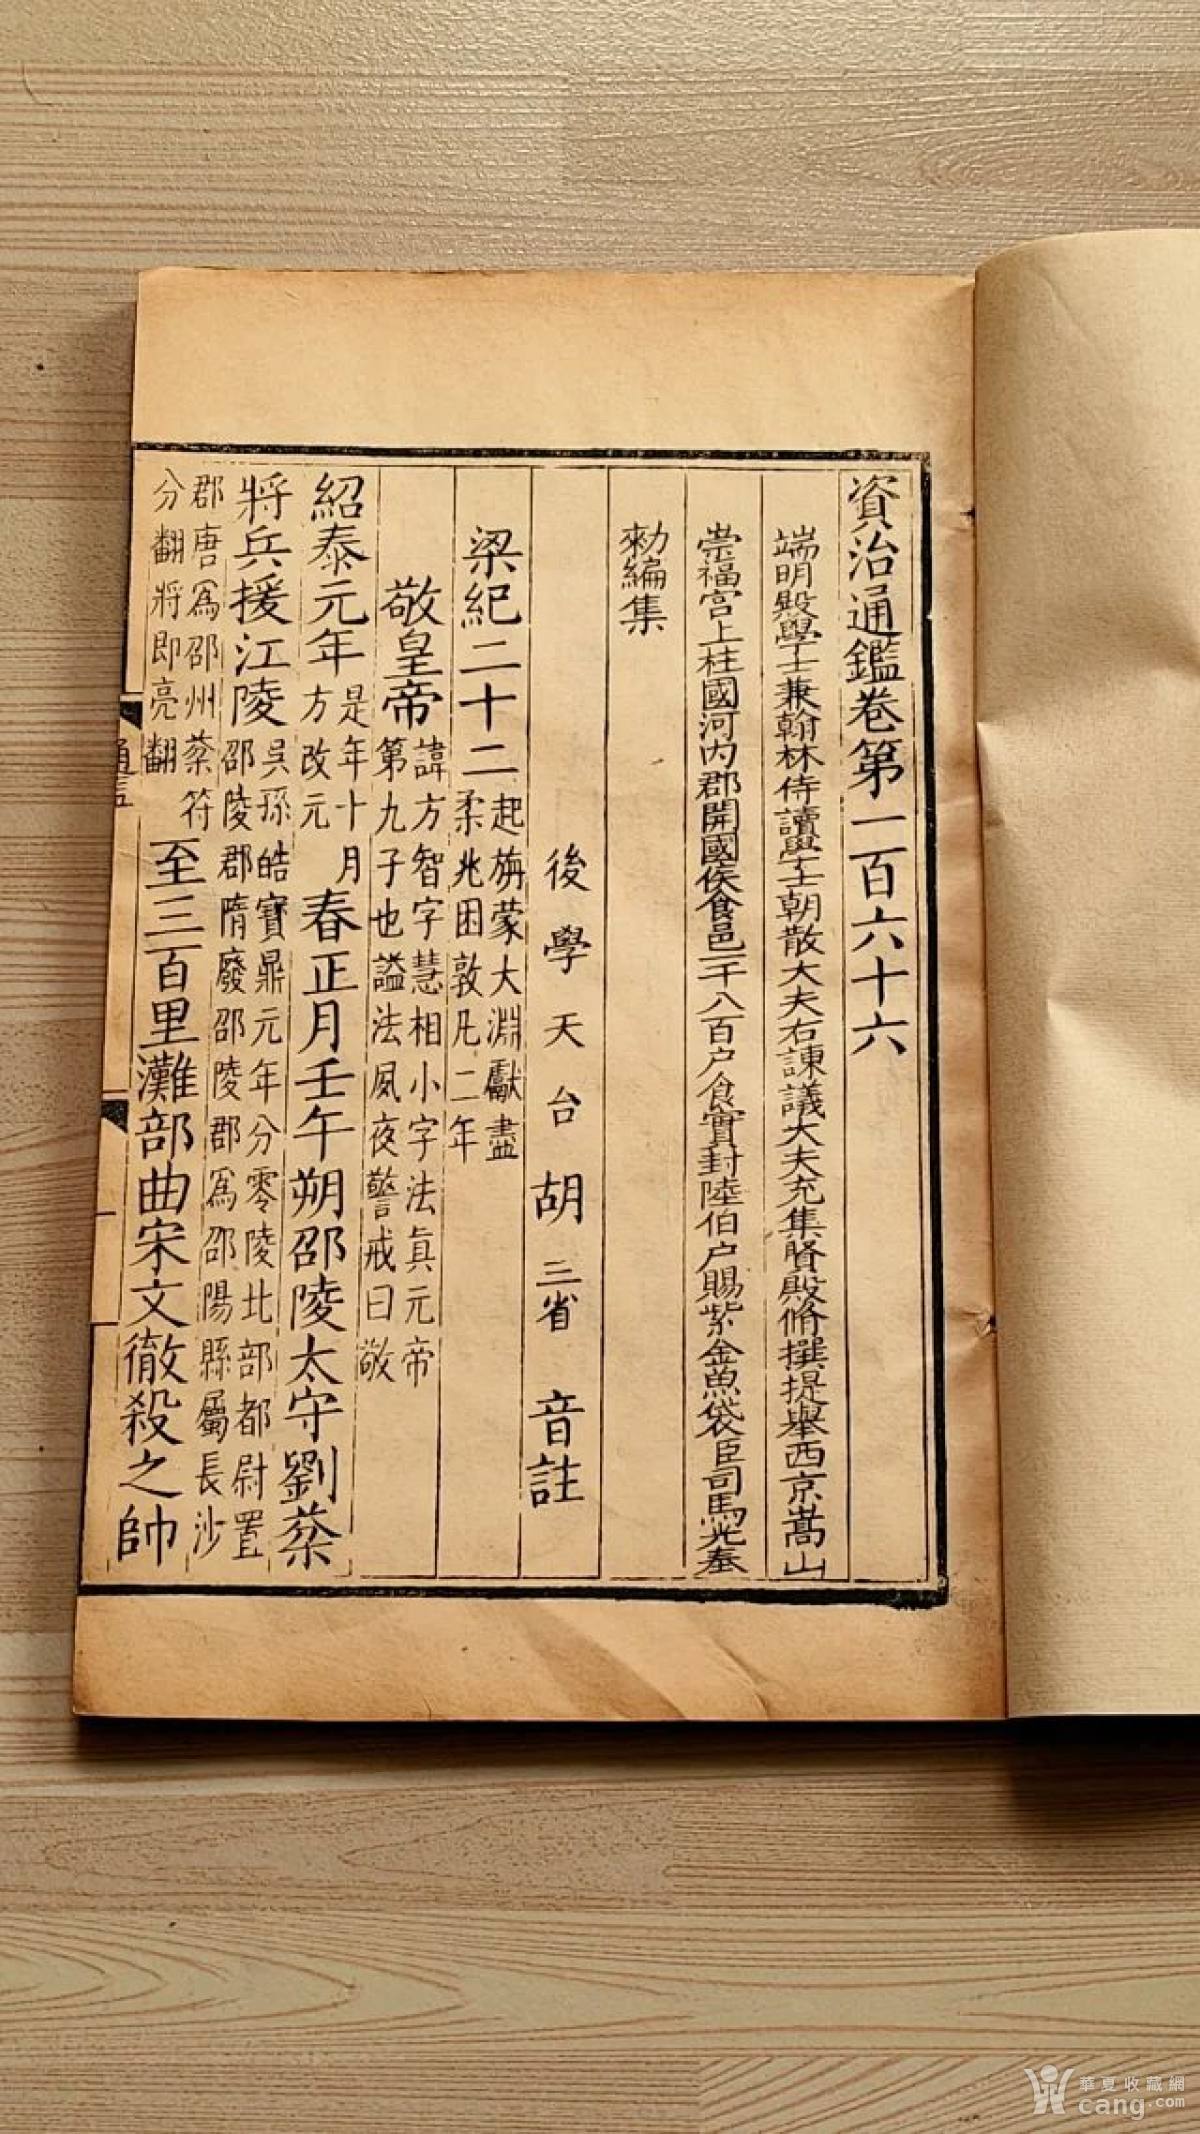 資治通鑑卷第一百六十六
端明殿學士兼翰林侍讀學士朝散大夫右諫議大夫充集賢殿脩撰提舉西京嵩山
崇福宮上柱國河內郡開國侯食邑一千八百户食實封陸伯户賜紫金魚袋臣司馬光奉
勑編集
後學天台胡三省音註
梁紀二十二起旃蒙大淵獻盡柔兆困敦凡二年
敬皇帝諱方智字慧相小字法眞元帝第九子也謚法夙夜警戒曰敬
紹泰元年是年十月方改元春正月壬午朔邵陵太守劉棻
將兵援江陵吳孫皓寶鼎元年分零陵北部都尉置邵陵郡隋廢邵陵郡爲邵陽縣屬長沙
郡唐爲邵州棻符分翻將即亮翻至三百里灘部曲宋文徹殺之帥
華夏收藏網
cang.com